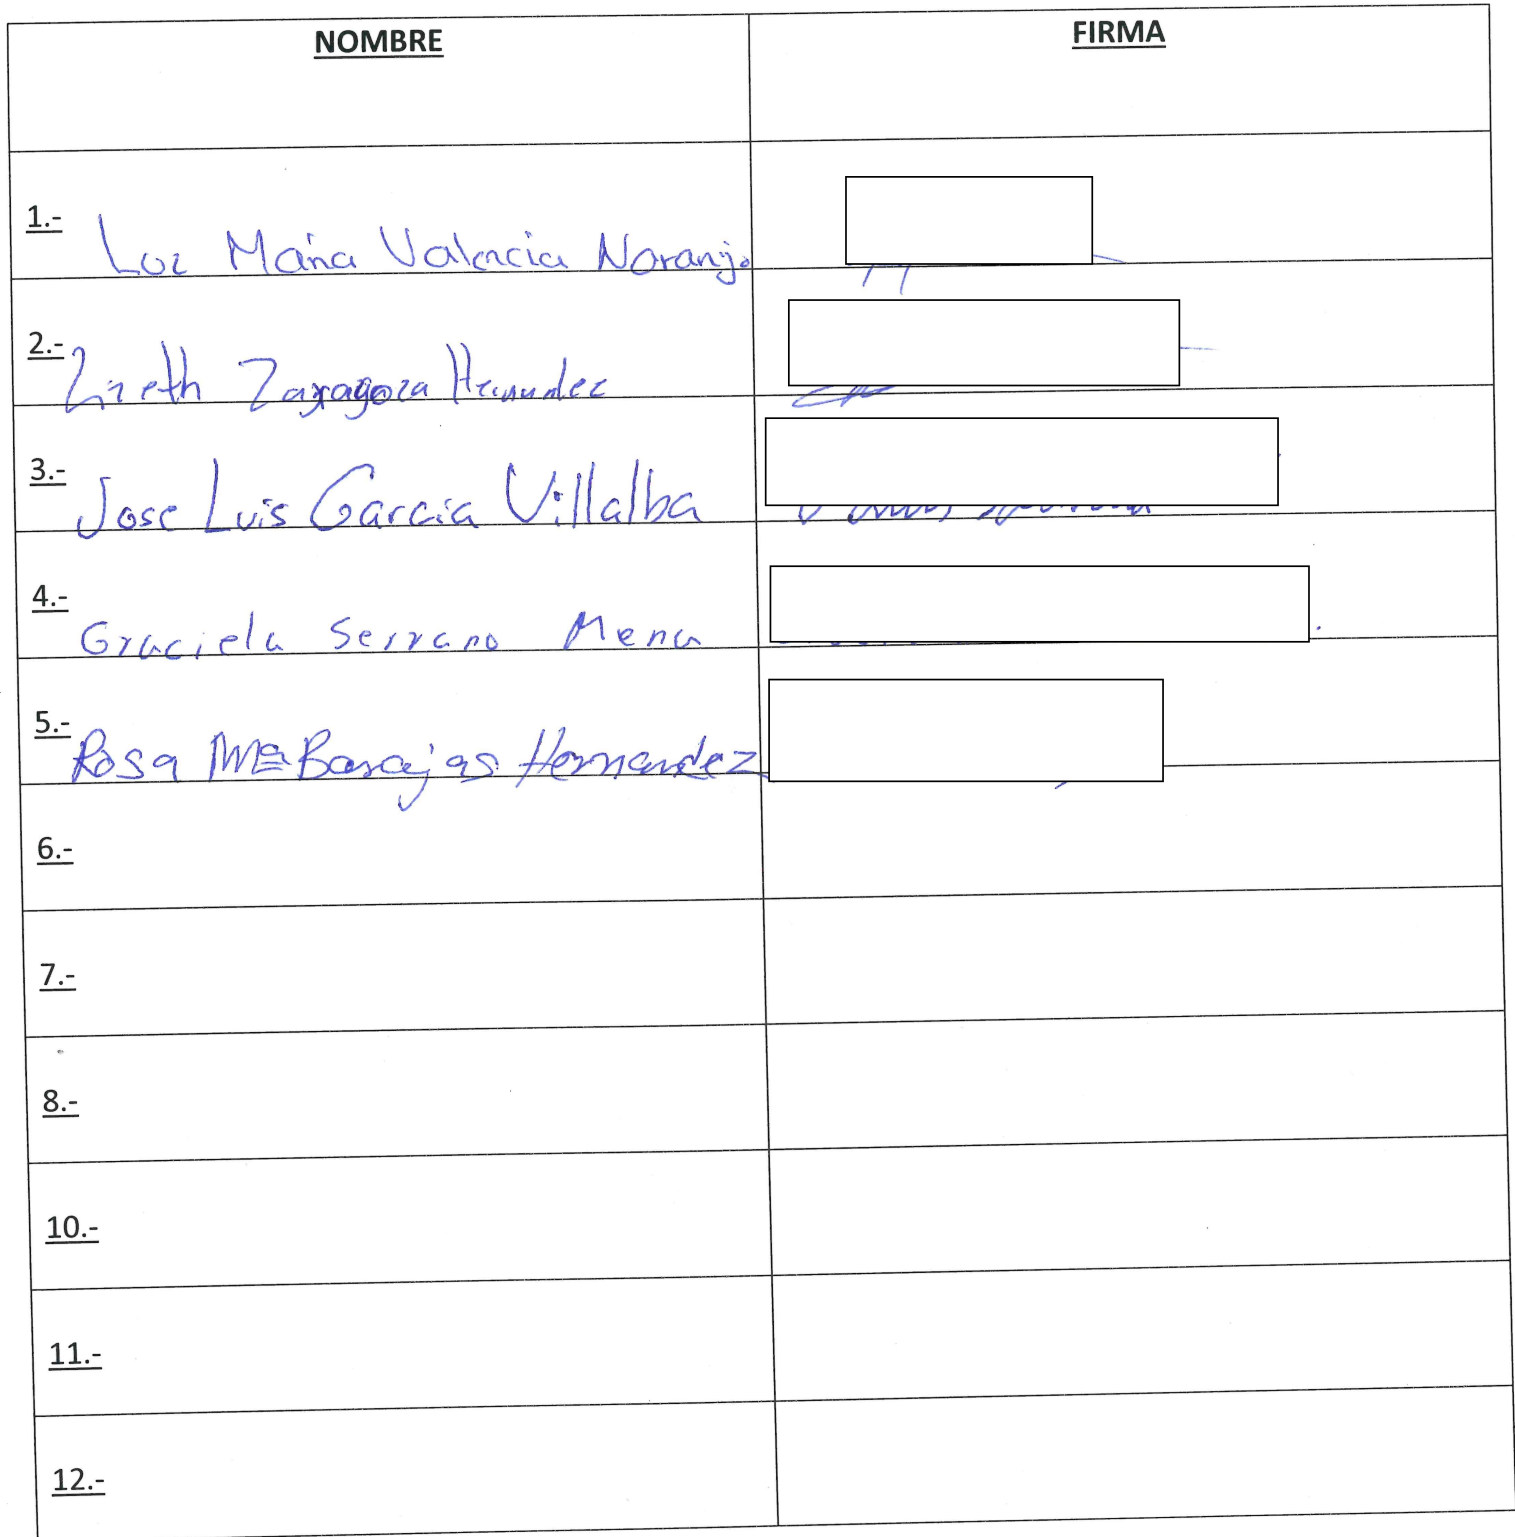 NOMBRE FIRMA
1.- Luz Maria Valencia Naranjo
2.- Lizeth Zaragoza Hernandez
3.- Jose Luis Garcia Villalba
4.- Graciela Serrano Mena
5.- Rosa Mª Barajas Hernandez
6.-
7.-
8.-
10.-
11.-
12.-